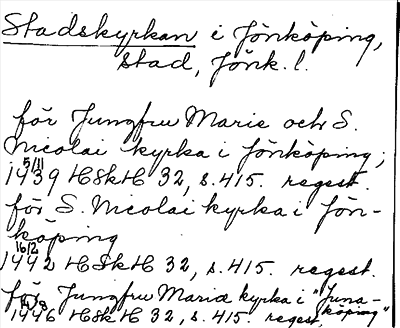 Stadskyrkan i Jönköping,
stad, Jönk. l.
för Jungfru Marie och S.
Nicolai kyrka i Jönköping;
5/11
1439 HSkH 32, s. 415. regest.
för S. Nicolai kyrka i Jön-
köping
16/2
1442 HSkH 32, s. 415. regest.
för Jungfru Mariæ kyrka i "Juna-
köping"
1446 HSkH 32, s. 415. regest